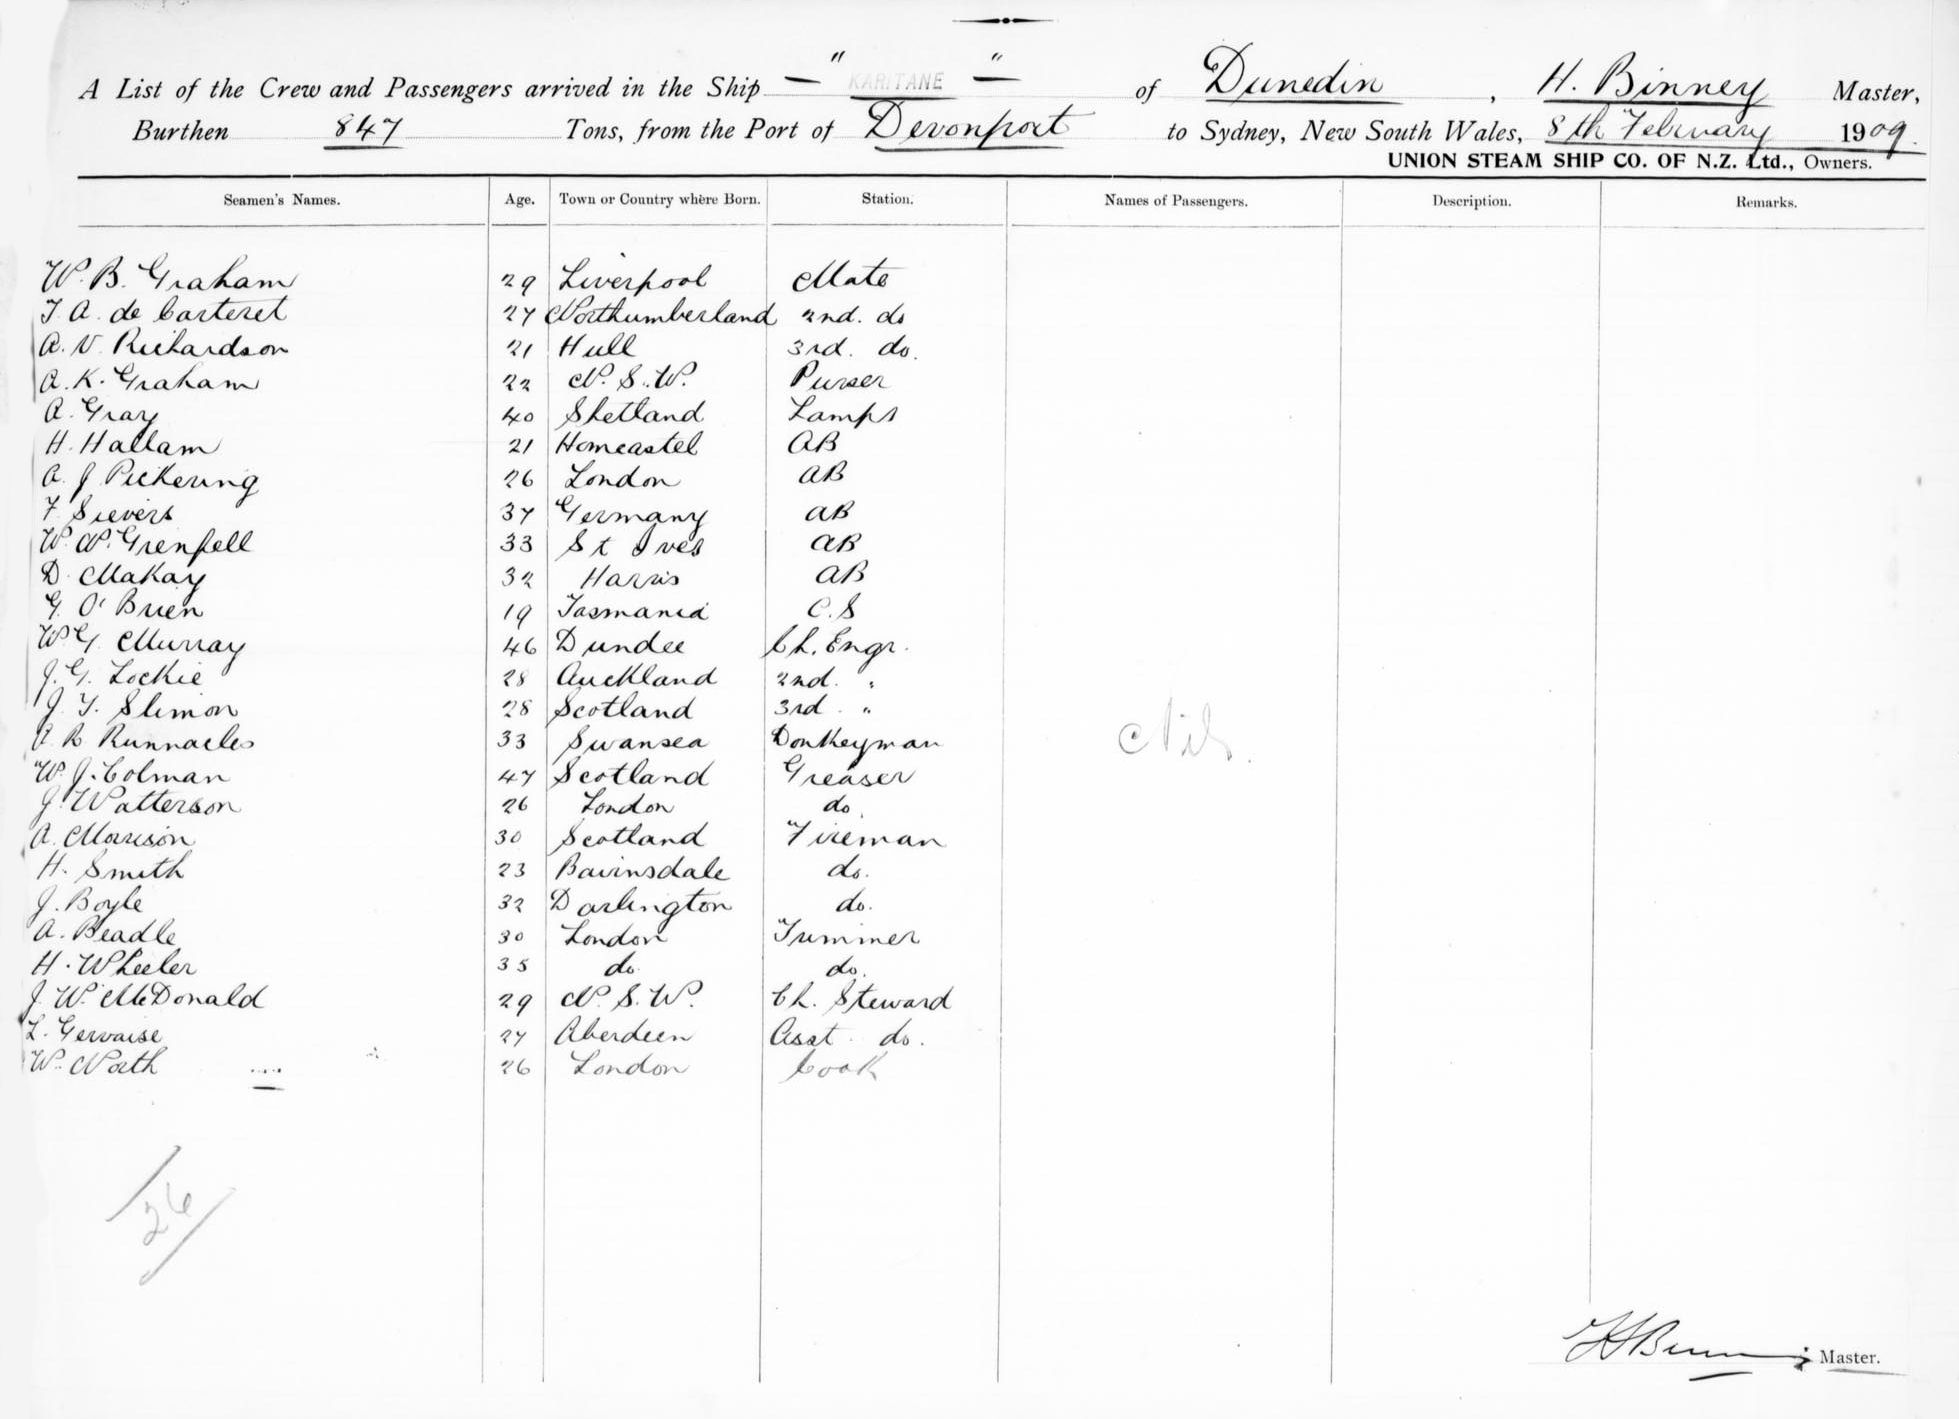 A List of the Crew and Passengers arrived in the Ship — " KARITANE " — of Dunedin, H. Binney Master,
Burthen 847 Tons, from the Port of Devonport to Sydney, New South Wales, 8th February 1909.
UNION STEAM SHIP CO. OF N.Z. Ltd., Owners.
Seamen's Names. Age. Town or Country where Born. Station. Names of Passengers. Description. Remarks.
W. B. Graham 29 Liverpool Mate
F. A. de Carteret 27 Northumberland 2nd. do
A. V. Richardson 21 Hull 3rd. do.
A. K. Graham 22 N. S. W. Purser
A. Gray 40 Shetland Lamps
H. Hallam 21 Horncastel AB
A. J. Pickering 26 London AB
F. Sievers 37 Germany AB
W. N. Grenfell 33 St Ives AB
D. MaKay 32 Harris AB
G. O'Brien 19 Tasmania O.S
W. G. Murray 46 Dundee Ch. Engr.
J. G. Lockie 28 Auckland 2nd. "
J. Y. Slimon 28 Scotland 3rd "
A R Runnacles 33 Swansea Donkeyman
Nil.
W. J. Colman 47 Scotland Greaser
J. Watterson 26 London do.
A. Morrison 30 Scotland Fireman
H. Smith 23 Bairnsdale do.
J. Boyle 32 Darlington do.
A. Beadle 30 London Trimmer
H. Wheeler 35 do. do.
J. W. McDonald 29 N. S. W. Ch. Steward
L. Gervaise 27 Aberdeen Asst. do.
W. North 26 London Cook
26
H Binney Master.